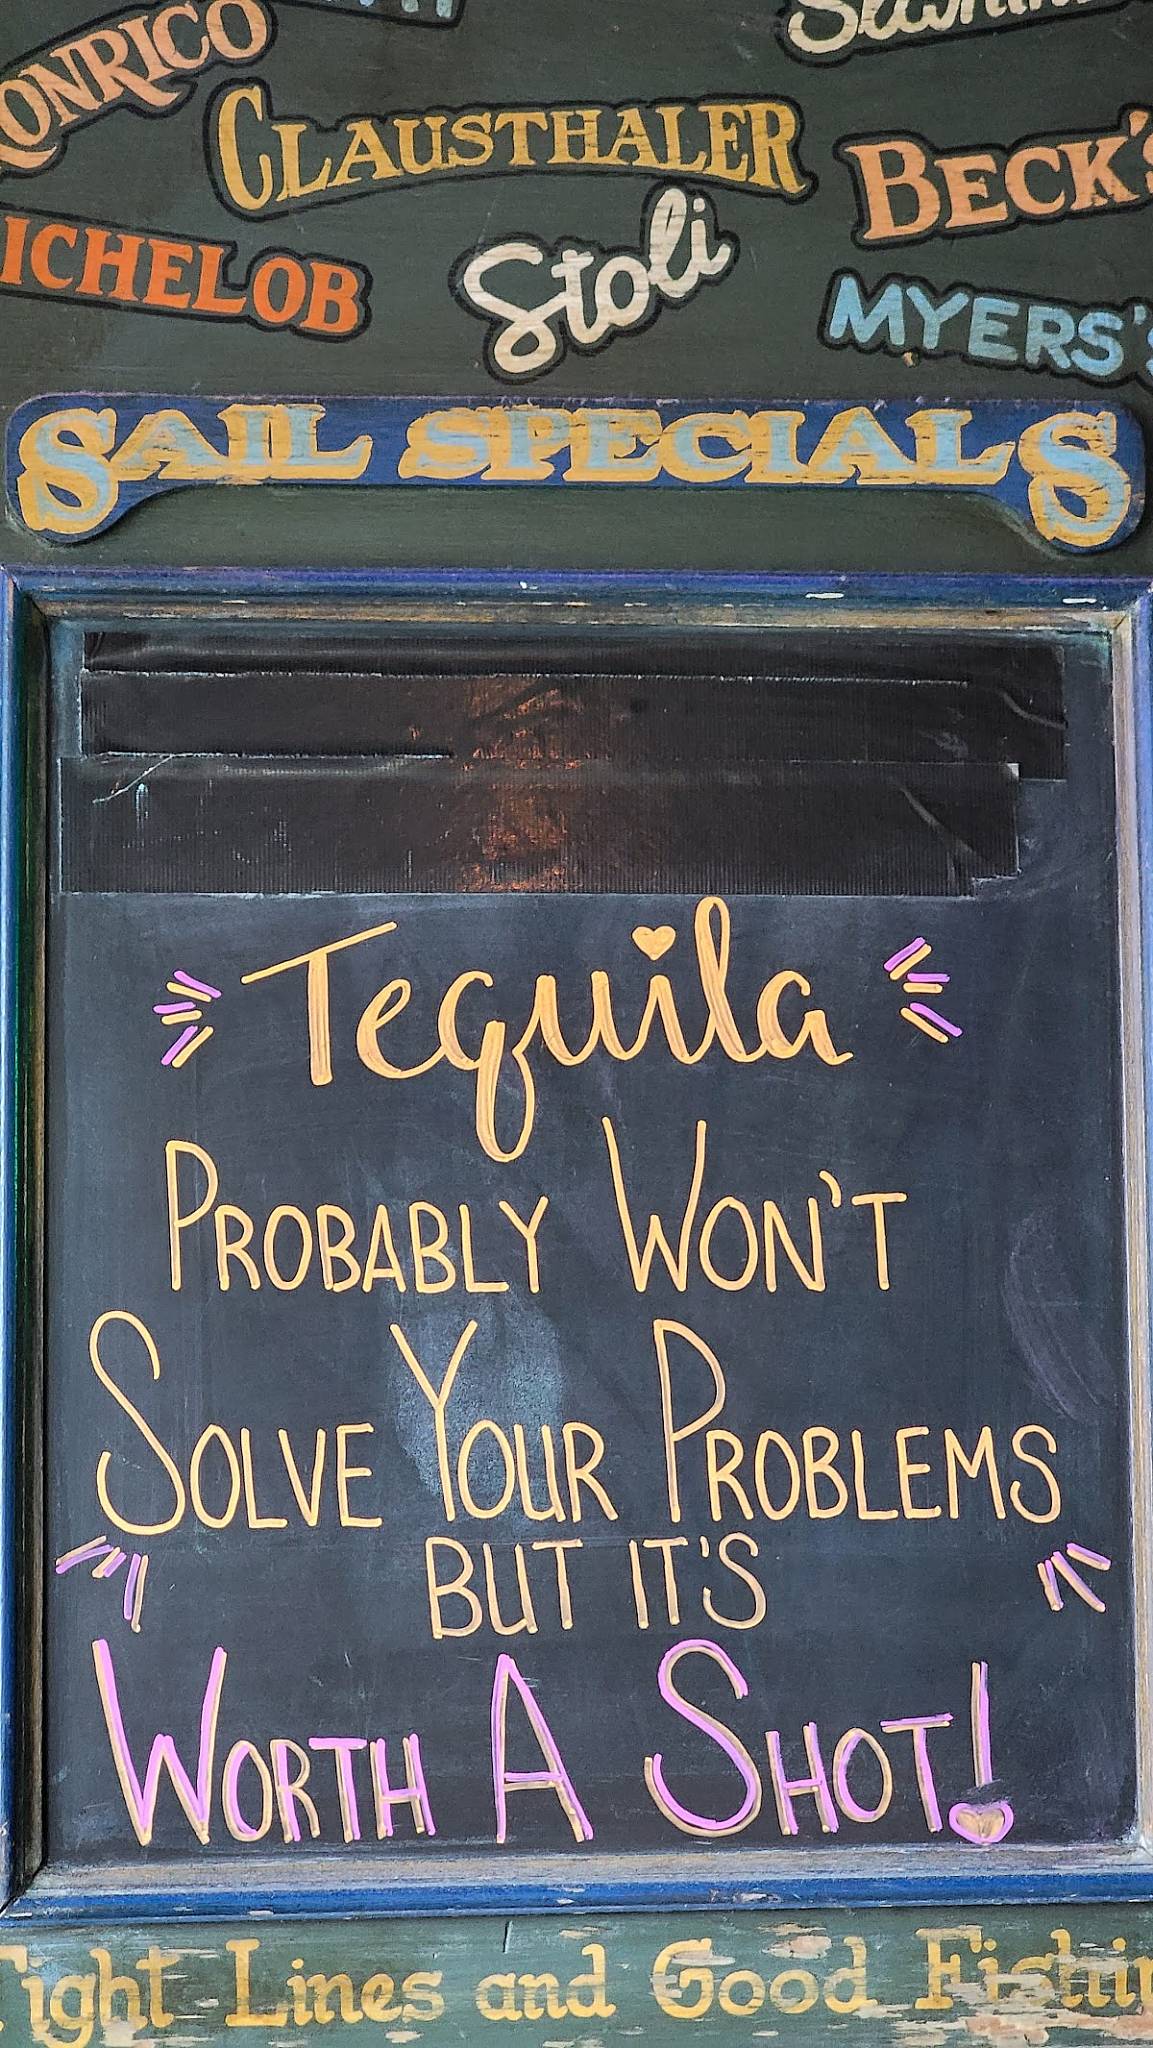 CLAUSTHALER
BECK'S
Stoli
MYERS'S
SAIL SPECIALS
Tequila
PROBABLY WON'T
SOLVE YOUR PROBLEMS
BUT IT'S
WORTH A SHOT!
Tight Lines and Good Fishin